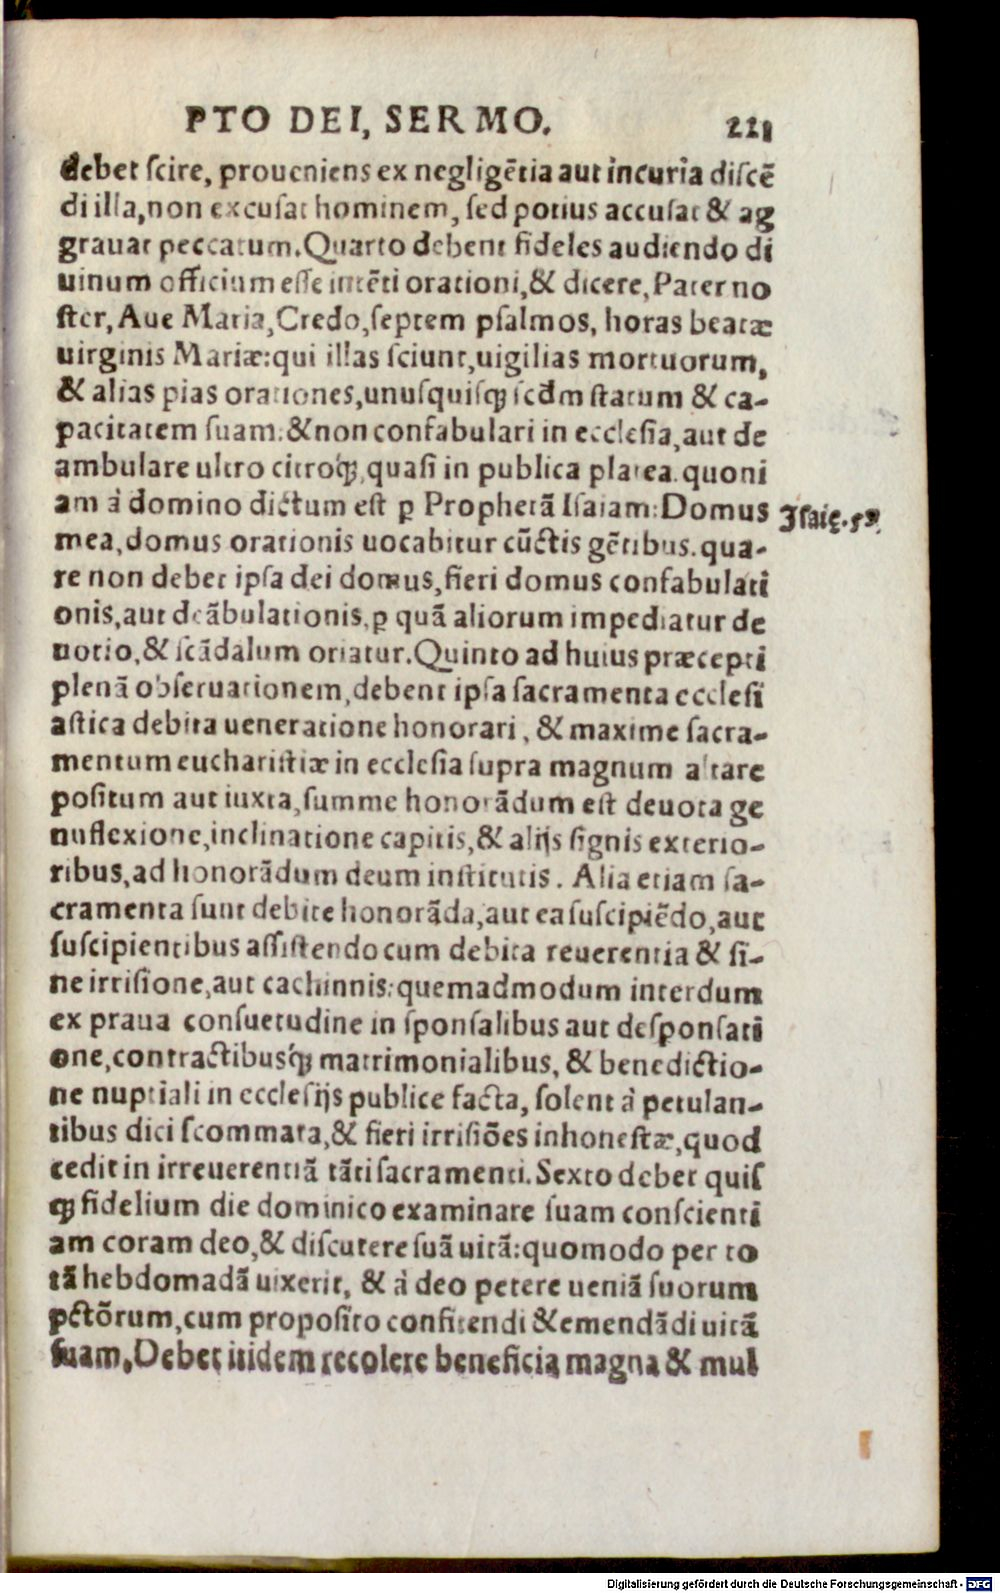 PTO DEI, SERMO. 221
debet ſcire, proueniens ex negligẽtia aut incuria diſcẽ
di illa, non excuſat hominem, ſed potius accuſat & ag
grauat peccatum. Quarto debent fideles audiendo di
uinum officium eſſe intẽti orationi, & dicere, Pater no
ſter, Aue Maria, Credo, ſeptem pſalmos, horas beatæ
uirginis Mariæ: qui illas ſciunt, uigilias mortuorum,
& alias pias orationes, unuſquiſq; ſcdm ſtatum & ca-
pacitatem ſuam: & non confabulari in eccleſia, aut de
ambulare ultro citroq́;, quaſi in publica platea. quoni
am à domino dictum eſt ꝑ Prophetã Iſaiam: Domus
Iſaię. 58.
mea, domus orationis uocabitur cũctis gẽtibus. qua-
re non debet ipſa dei domus, fieri domus confabulati
onis, aut deãbulationis, ꝑ quã aliorum impediatur de
uotio, & ſcãdalum oriatur. Quinto ad huius præcepti
plenã obſeruationem, debent ipſa ſacramenta eccleſi
aſtica debita ueneratione honorari, & maxime ſacra-
mentum euchariſtiæ in eccleſia ſupra magnum altare
poſitum aut iuxta, ſumme honorãdum eſt deuota ge
nuflexione, inclinatione capitis, & alijs ſignis exterio-
ribus, ad honorãdum deum inſtitutis. Alia etiam ſa-
cramenta ſunt debite honorãda, aut ea ſuſcipiẽdo, aut
ſuſcipientibus aſſiſtendo cum debita reuerentia & ſi-
ne irriſione, aut cachinnis: quemadmodum interdum
ex praua conſuetudine in ſponſalibus aut deſponſati
one, contractibusq́; matrimonialibus, & benedictio-
ne nuptiali in eccleſijs publice facta, ſolent à petulan-
tibus dici ſcommata, & fieri irriſiões inhoneſtæ, quod
cedit in irreuerentiã tãti ſacramenti. Sexto debet quiſ
q; fidelium die dominico examinare ſuam conſcienti
am coram deo, & diſcutere ſuã uitã: quomodo per to
tã hebdomadã uixerit, & à deo petere ueniã ſuorum
pctõrum, cum propoſito confitendi & emendãdi uitã
ſuam. Debet itidem recolere beneficia magna & mul
Digitalisierung gefördert durch die Deutsche Forschungsgemeinschaft - DFG